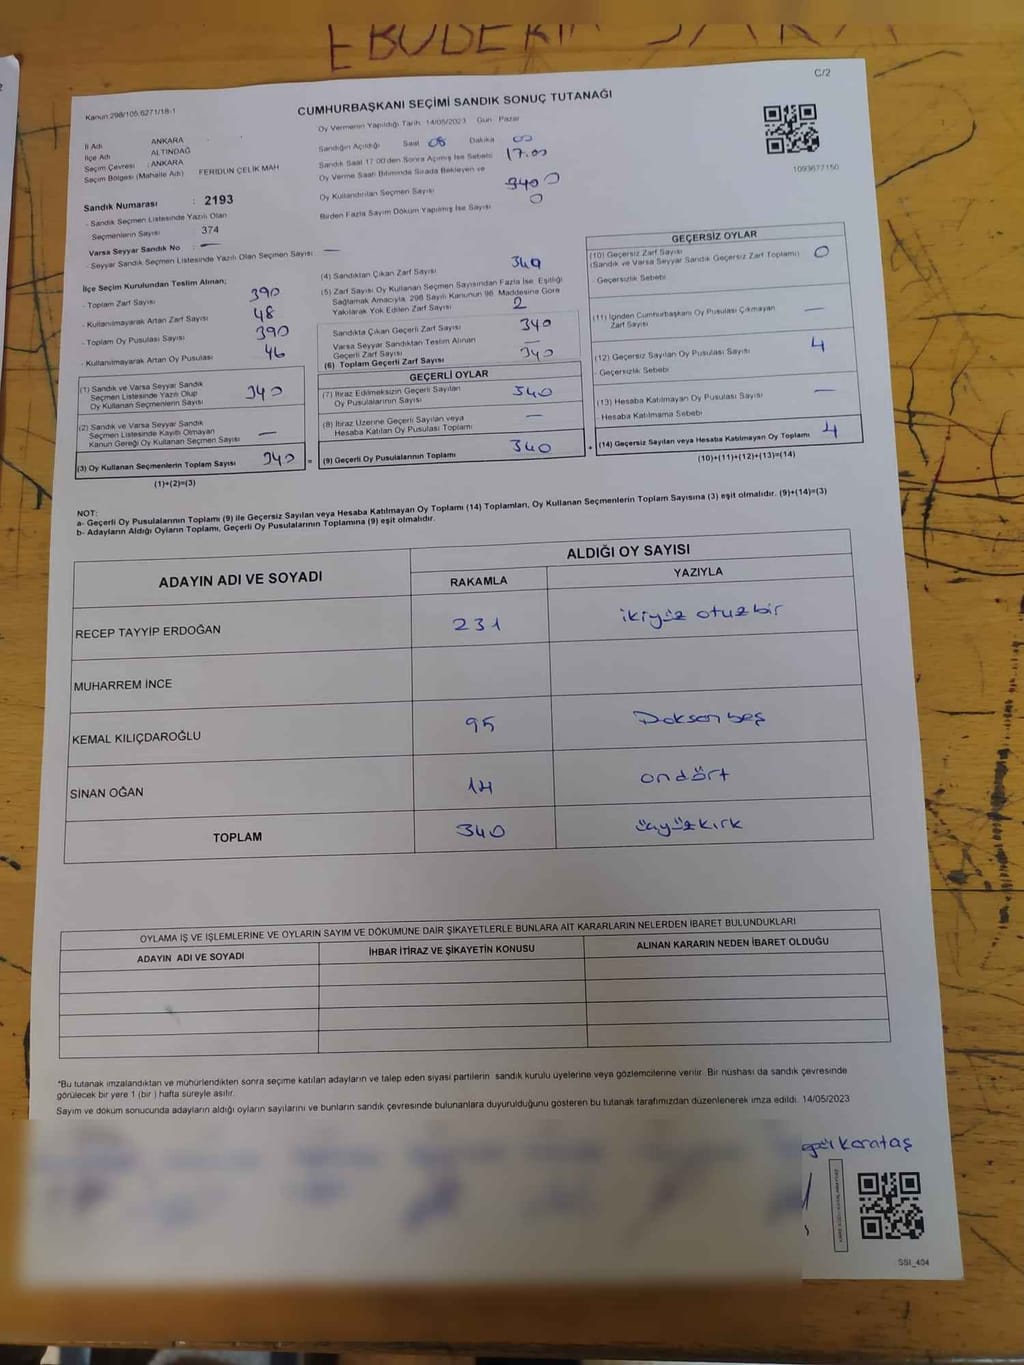 EBUBEKİR
C/2
Kanun:298/105,6271/18-1
CUMHURBAŞKANI SEÇİMİ SANDIK SONUÇ TUTANAĞI
Oy Vermenin Yapıldığı Tarih 14/05/2023 Gün Pazar
İl Adı ANKARA
İlçe Adı ALTINDAĞ
Seçim Çevresi : ANKARA
Seçim Bölgesi (Mahalle Adı) FERİDUN ÇELİK MAH
Sandığın Açıldığı Saat 08 Dakika 00
Sandık Saat 17:00'den Sonra Açımış İse Sebebi 17.00
Oy Verme Saati Bitiminde Sırada Bekleyen ve
Oy Kullandırılan Seçmen Sayısı 340 0
Birden Fazla Sayım Döküm Yapılmış İse Sayısı 0
1093677150
Sandık Numarası : 2193
- Sandık Seçmen Listesinde Yazılı Olan
Seçmenlerin Sayısı 374
Varsa Seyyar Sandık No : —
- Seyyar Sandık Seçmen Listesinde Yazılı Olan Seçmen Sayısı —
İlçe Seçim Kurulundan Teslim Alınan;
- Toplam Zarf Sayısı 390
- Kullanılmayarak Artan Zarf Sayısı 48
- Toplam Oy Pusulası Sayısı 390
- Kullanılmayarak Artan Oy Pusulası 46
(1) Sandık ve Varsa Seyyar Sandık
Seçmen Listesinde Yazılı Olup
Oy Kullanan Seçmenlerin Sayısı 340
(2) Sandık ve Varsa Seyyar Sandık
Seçmen Listesinde Kayıtlı Olmayan
Kanun Gereği Oy Kullanan Seçmen Sayısı —
(3) Oy Kullanan Seçmenlerin Toplam Sayısı 340 =
(1)+(2)=(3)
(4) Sandıktan Çıkan Zarf Sayısı
(5) Zarf Sayısı Oy Kullanan Seçmen Sayısından Fazla İse, Eşitliği
Sağlamak Amacıyla, 298 Sayılı Kanunun 98. Maddesine Göre
Yakılarak Yok Edilen Zarf Sayısı 2
Sandıkta Çıkan Geçerli Zarf Sayısı 340
Varsa Seyyar Sandıktan Teslim Alınan
Geçerli Zarf Sayısı —
(6) Toplam Geçerli Zarf Sayısı 340
GEÇERLİ OYLAR
(7) İtiraz Edilmeksizin Geçerli Sayılan
Oy Pusulalarının Sayısı 340
(8) İtiraz Üzerine Geçerli Sayılan veya
Hesaba Katılan Oy Pusulası Toplamı —
(9) Geçerli Oy Pusulalarının Toplamı 340 +
GEÇERSİZ OYLAR
(10) Geçersiz Zarf Sayısı
(Sandık ve Varsa Seyyar Sandık Geçersiz Zarf Toplamı) 0
- Geçersizlik Sebebi
(11) İçinden Cumhurbaşkanı Oy Pusulası Çıkmayan
Zarf Sayısı —
(12) Geçersiz Sayılan Oy Pusulası Sayısı 4
- Geçersizlik Sebebi
(13) Hesaba Katılmayan Oy Pusulası Sayısı —
- Hesaba Katılmama Sebebi
(14) Geçersiz Sayılan veya Hesaba Katılmayan Oy Toplamı 4
(10)+(11)+(12)+(13)=(14)
NOT:
a- Geçerli Oy Pusulalarının Toplamı (9) ile Geçersiz Sayılan veya Hesaba Katılmayan Oy Toplamı (14) Toplamları, Oy Kullanan Seçmenlerin Toplam Sayısına (3) eşit olmalıdır. (9)+(14)=(3)
b- Adayların Aldığı Oyların Toplamı, Geçerli Oy Pusulalarının Toplamına (9) eşit olmalıdır.
ADAYIN ADI VE SOYADI ALDIĞI OY SAYISI
RAKAMLA YAZIYLA
RECEP TAYYİP ERDOĞAN 231 ikiyüz otuzbir
MUHARREM İNCE
KEMAL KILIÇDAROĞLU 95 Doksan beş
SİNAN OĞAN 14 ondört
TOPLAM 340 üçyüzkırk
OYLAMA İŞ VE İŞLEMLERİNE VE OYLARIN SAYIM VE DÖKÜMÜNE DAİR ŞİKAYETLERLE BUNLARA AİT KARARLARIN NELERDEN İBARET BULUNDUKLARI
ADAYIN ADI VE SOYADI İHBAR İTİRAZ VE ŞİKAYETİN KONUSU ALINAN KARARIN NEDEN İBARET OLDUĞU
*Bu tutanak imzalandıktan ve mühürlendikten sonra seçime katılan adayların ve talep eden siyasi partilerin sandık kurulu üyelerine veya gözlemcilerine verilir. Bir nüshası da sandık çevresinde
görülecek bir yere 1 (bir ) hafta süreyle asılır.
Sayım ve döküm sonucunda adayların aldığı oyların sayılarını ve bunların sandık çevresinde bulunanlara duyurulduğunu gösteren bu tutanak tarafımızdan düzenlenerek imza edildi. 14/05/2023
Karataş
SSI_404